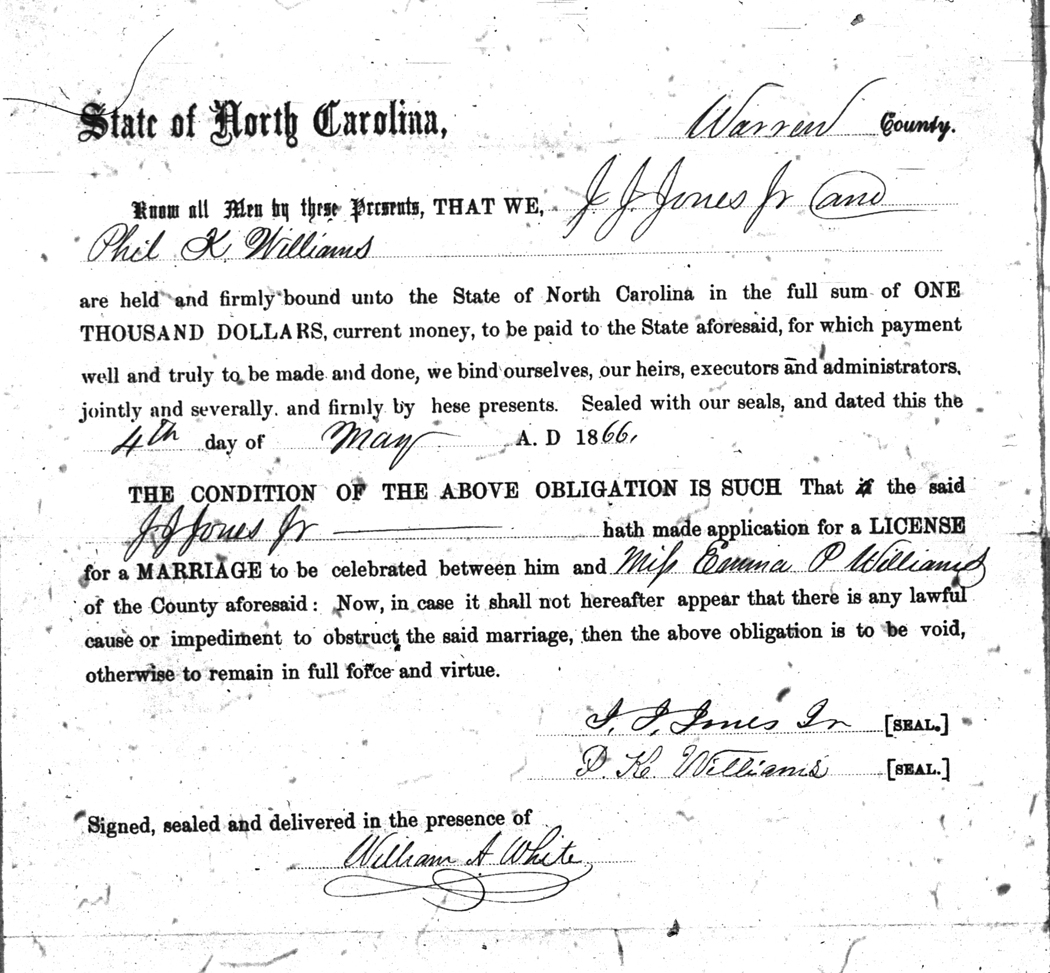 State of North Carolina, Warren County.
Know all Men by these Presents, THAT WE, J. J. Jones Jr and
Phil K. Williams
are held and firmly bound unto the State of North Carolina in the full sum of ONE
THOUSAND DOLLARS, current money, to be paid to the State aforesaid, for which payment
well and truly to be made and done, we bind ourselves, our heirs, executors and administrators,
jointly and severally. and firmly by hese presents. Sealed with our seals, and dated this the
4th day of May A. D 1866,
THE CONDITION OF THE ABOVE OBLIGATION IS SUCH That if the said
J J Jones Jr hath made application for a LICENSE
for a MARRIAGE to be celebrated between him and Miss Emma P Williams
of the County aforesaid: Now, in case it shall not hereafter appear that there is any lawful
cause or impediment to obstruct the said marriage, then the above obligation is to be void,
otherwise to remain in full force and virtue.
J. J. Jones Jr [SEAL.]
P. K. Williams [SEAL.]
Signed, sealed and delivered in the presence of
William A White